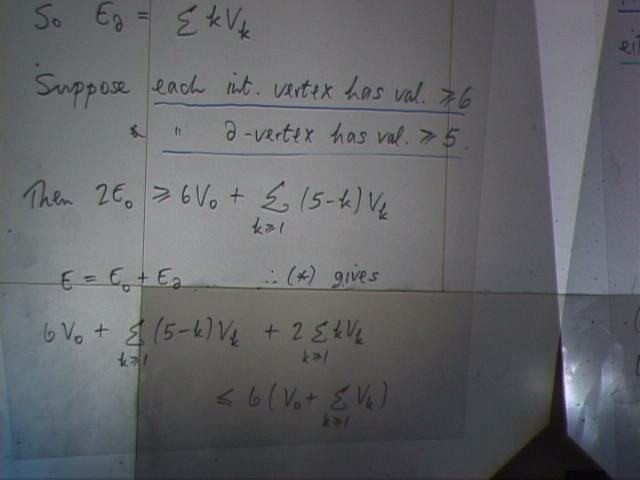 So E∂ = Σ kVk
Suppose each int. vertex has val. ≥ 6
& " ∂-vertex has val. ≥ 5.
Then 2E₀ ≥ 6V₀ + Σ (5-k)Vk
k≥1
E = E₀ + E∂ ∴ (*) gives
6V₀ + Σ (5-k)Vk + 2 Σ kVk
k≥1 k≥1
≤ 6 (V₀ + Σ Vk)
k≥1